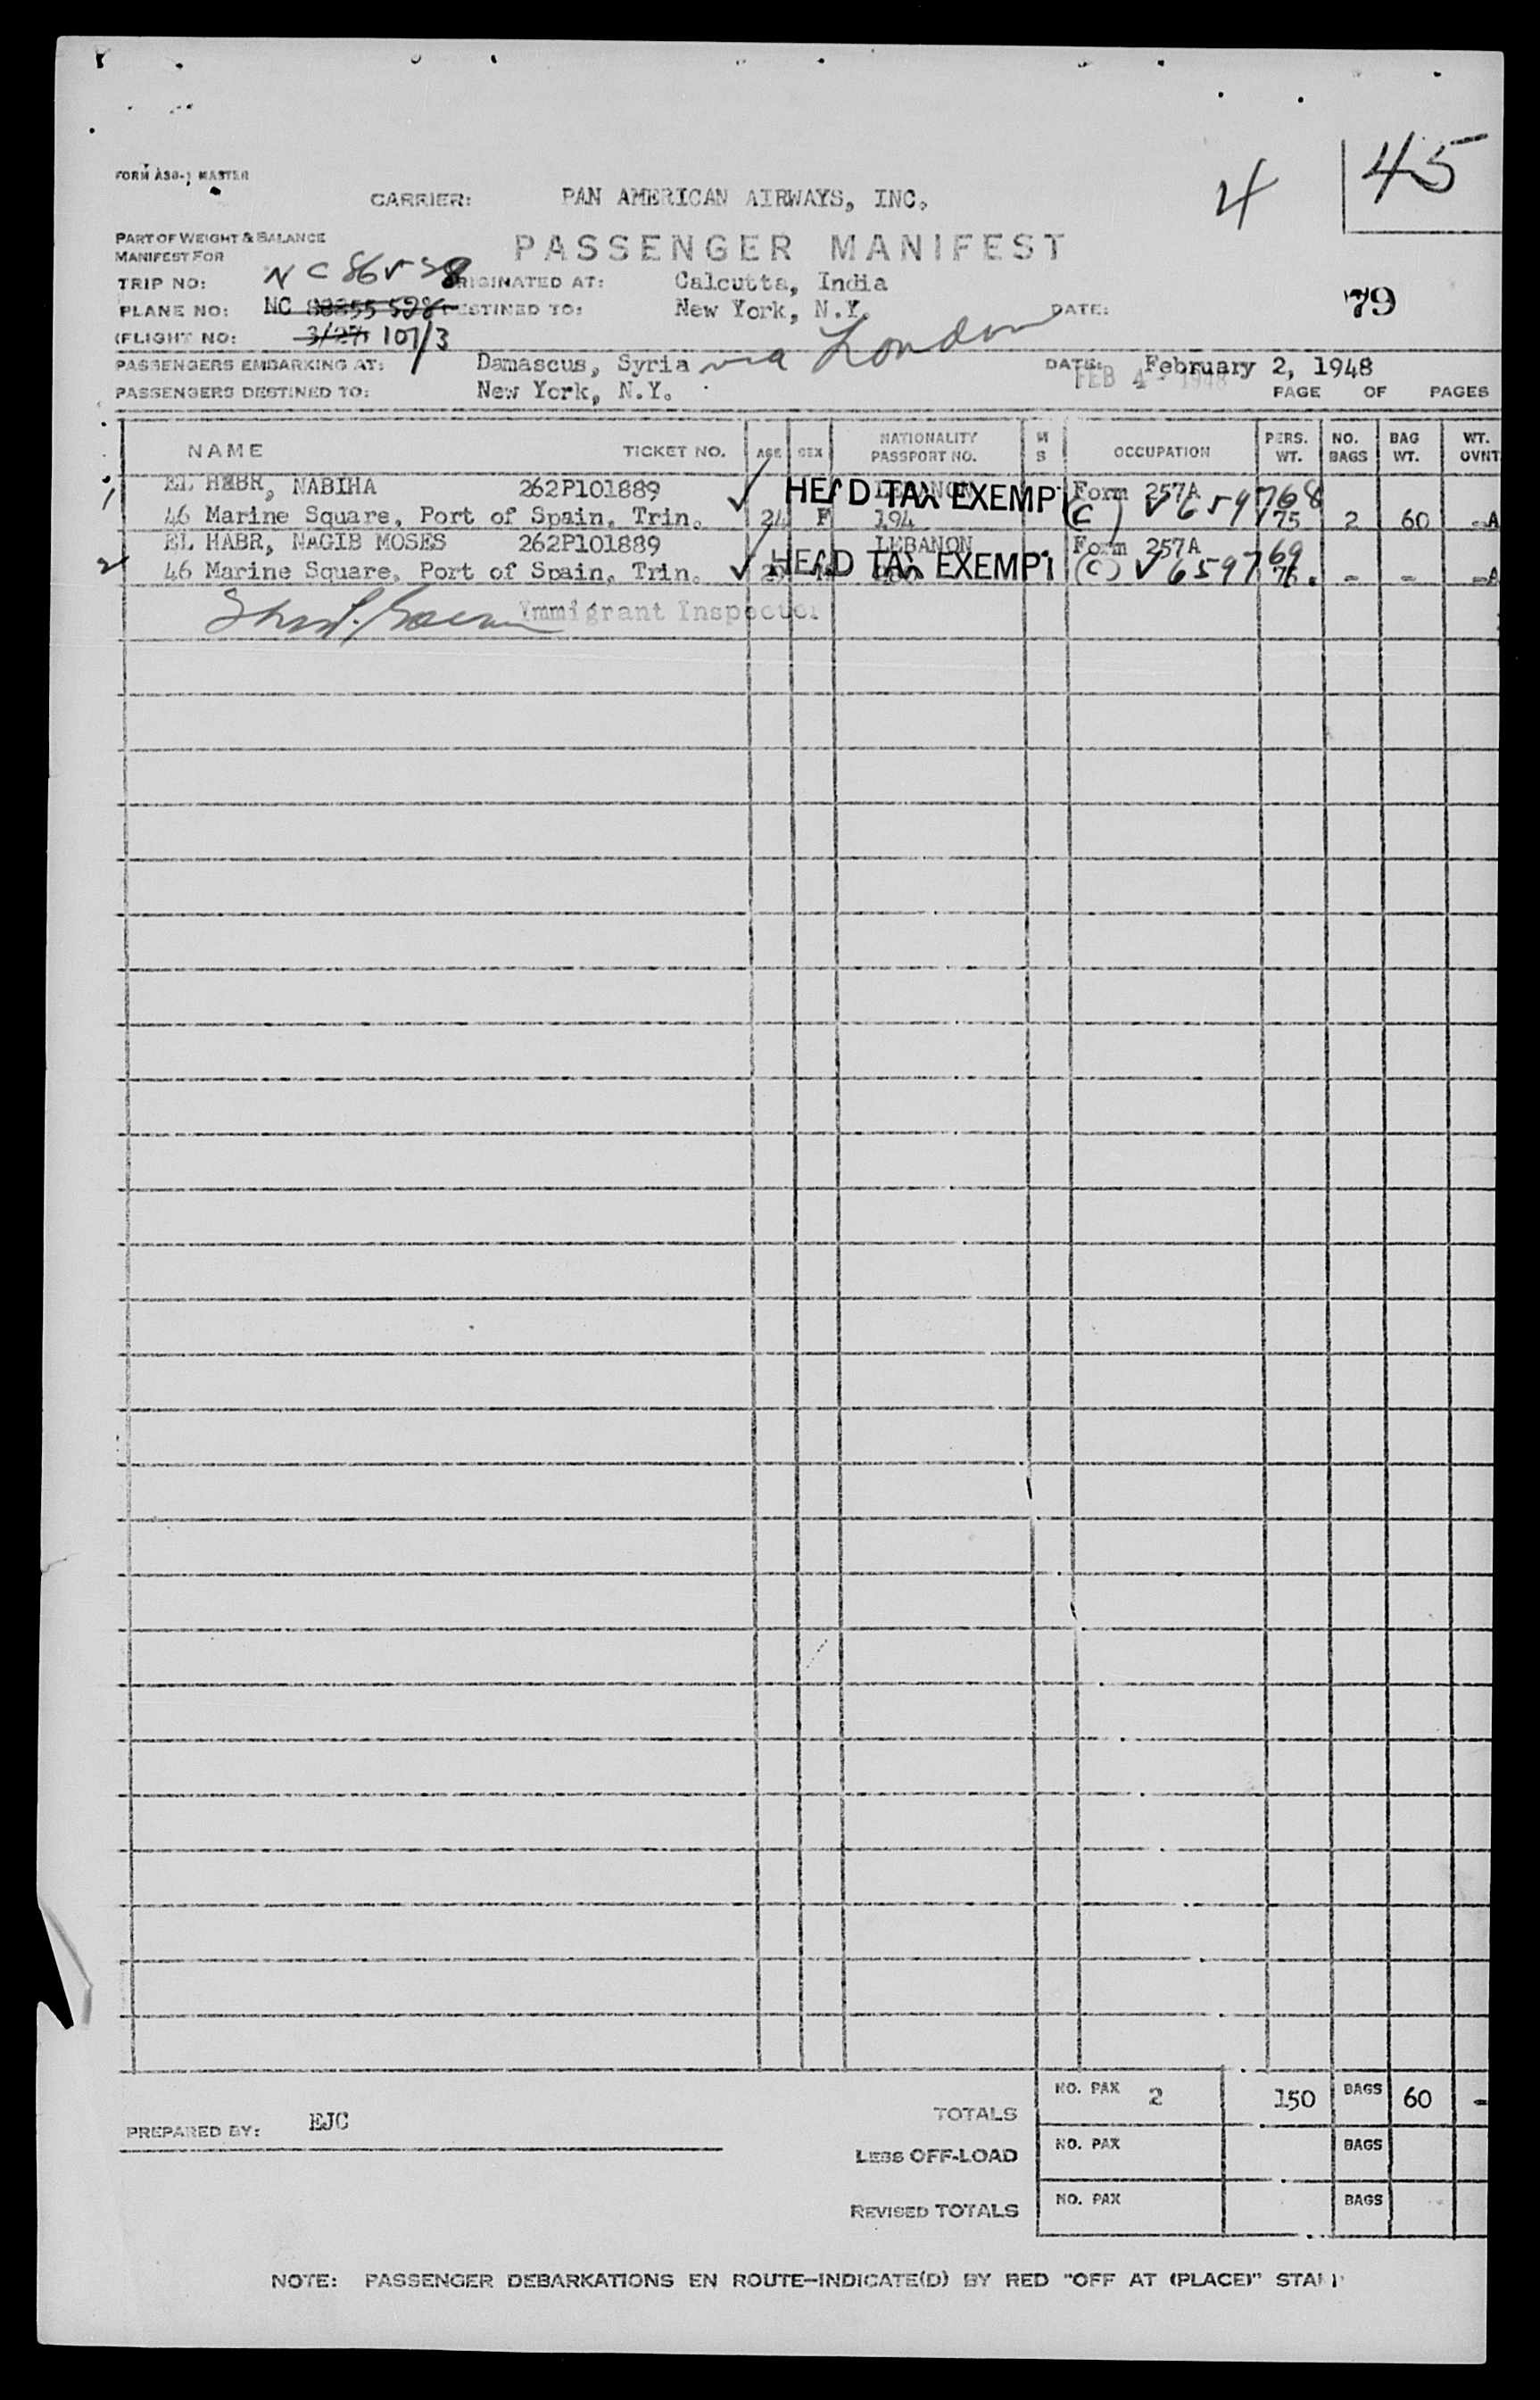 FORM ASG-1 MASTER
4 45
CARRIER: PAN AMERICAN AIRWAYS, INC.
PART OF WEIGHT & BALANCE
MANIFEST FOR
PASSENGER MANIFEST
TRIP NO: ORIGINATED AT: Calcutta, India
PLANE NO: NC DESTINED TO: New York, N.Y. DATE: 79
(FLIGHT NO: 107/3
via London
PASSENGERS EMBARKING AT: Damascus, Syria DATE: February 2, 1948
FEB 4 - 1948
PASSENGERS DESTINED TO: New York, N.Y. PAGE OF PAGES
NAME TICKET NO. AGE SEX NATIONALITY PASSPORT NO. M S OCCUPATION PERS. WT. NO. BAGS BAG WT. WT. OVNT
1 EL HEBR, NABIHA 262P101889 LEBANON HEAD TAX EXEMPT Form 257A
46 Marine Square, Port of Spain, Trin. 24 F 194 (C) V659768 75 2 60 -A
2 EL HABR, NAGIB MOSES 262P101889 LEBANON Form 257A
46 Marine Square, Port of Spain, Trin. HEAD TAX EXEMPT (C) V659769 - - -A
Immigrant Inspector
TOTALS NO. PAX 2 150 BAGS 60 -
PREPARED BY: EJC
LESS OFF-LOAD NO. PAX BAGS
REVISED TOTALS NO. PAX BAGS
NOTE: PASSENGER DEBARKATIONS EN ROUTE—INDICATE(D) BY RED "OFF AT (PLACE)" STAMP